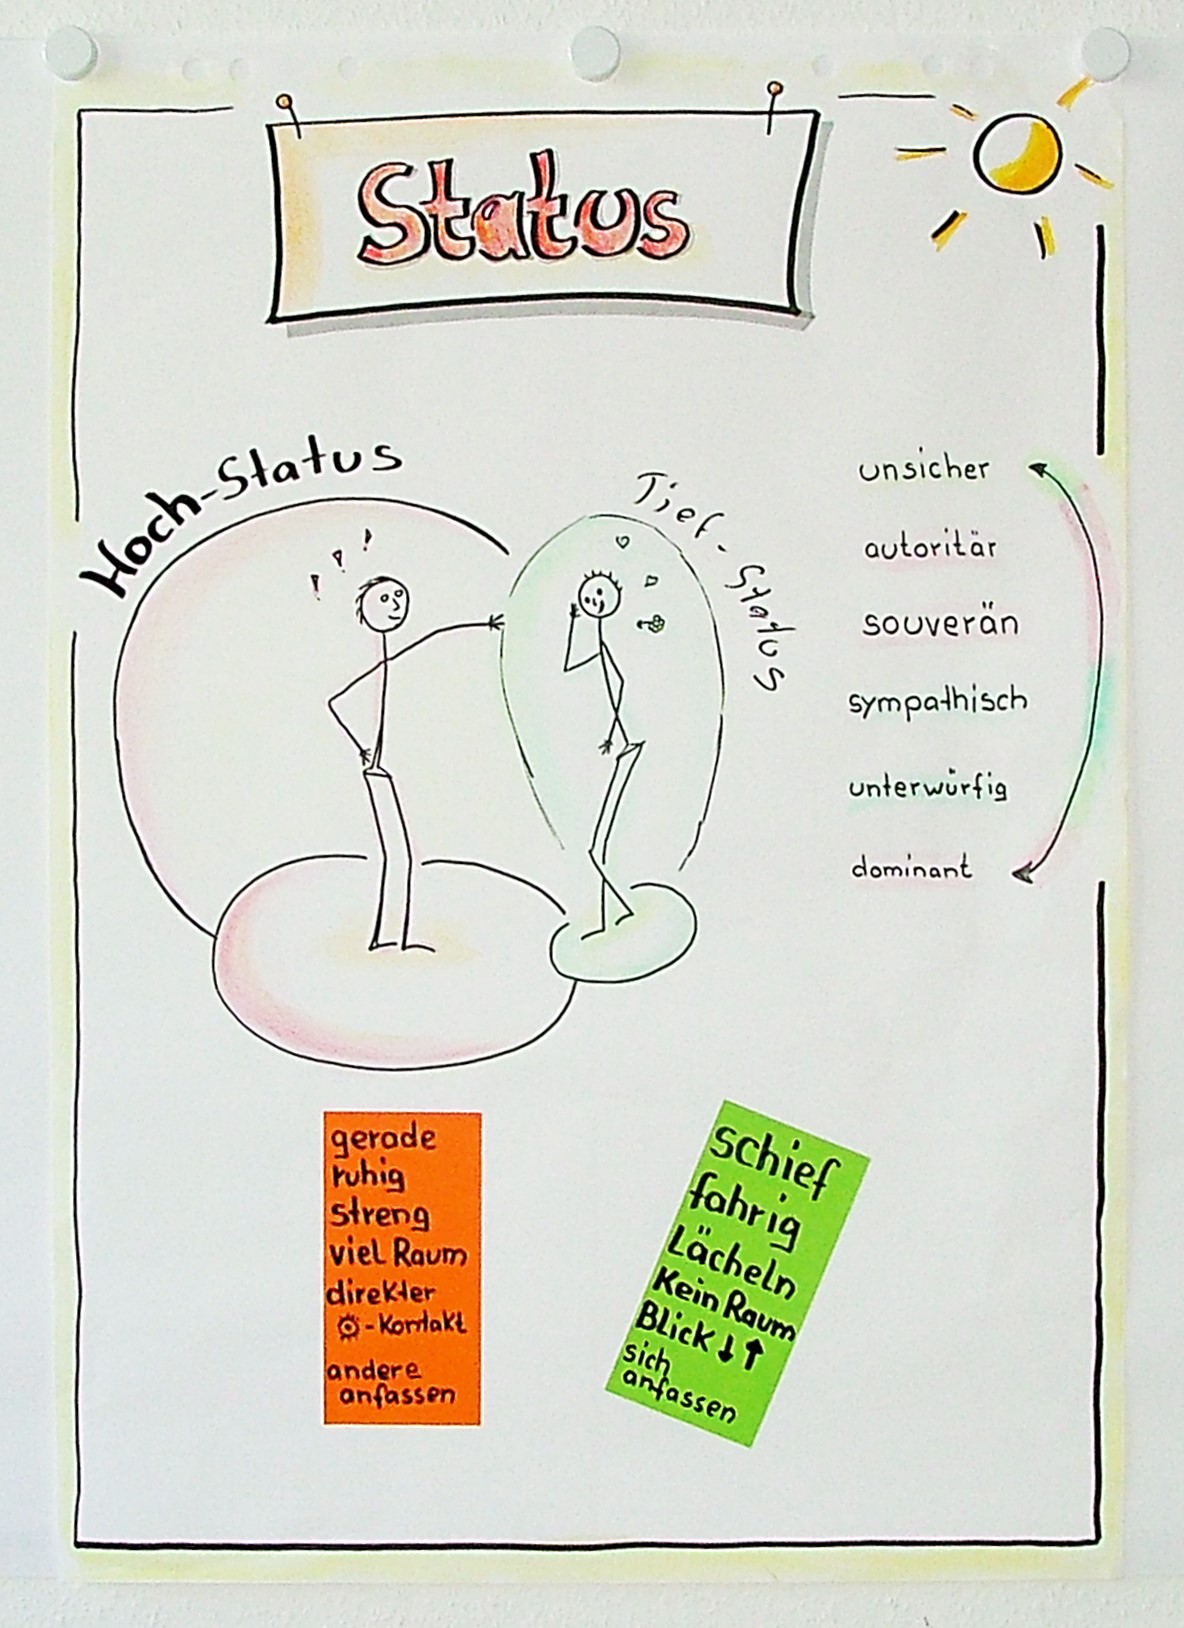 Status
Hoch-Status
Tief-Status
unsicher
autoritär
souverän
sympathisch
unterwürfig
dominant
gerade
ruhig
streng
viel Raum
direkter
-Kontakt
andere
anfassen
schief
fahrig
Lächeln
Kein Raum
Blick ↓↑
sich
anfassen